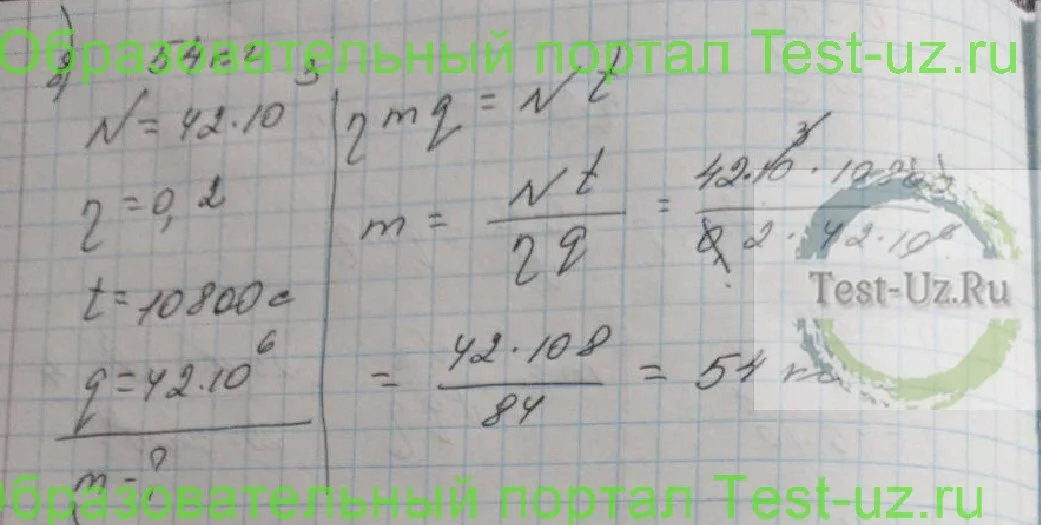 Образовательный портал Test-uz.ru
3) 54 кг
N = 42·10³
η = 0,2
t = 10800 с
q = 42·10⁶
m = ?
η m q = N t
m = N t / η q = 42·10³ · 10800 / 0,2 · 42·10⁶
= 42·108 / 84 = 54 кг
Test-Uz.Ru
Образовательный портал Test-uz.ru